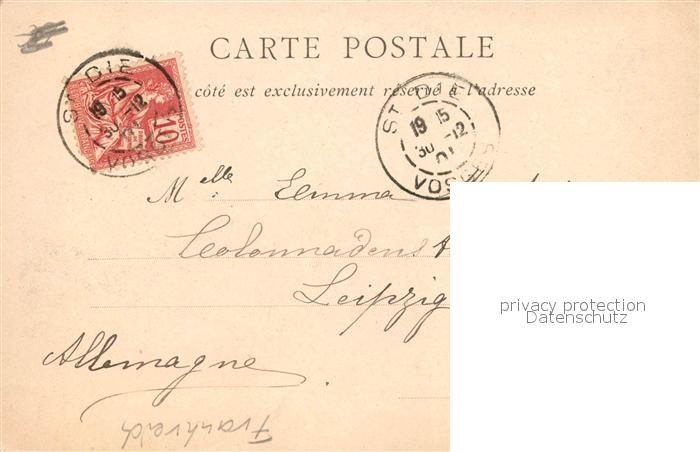 CARTE POSTALE
côté est exclusivement réservé à l'adresse
10
POSTES
ST DIE
19 15
30 -12
VOSGES
ST DIE
19 15
30 -12
01
VOSGES
Mlle Emma
Colonnadenst
Leipzig
Allemagne
Frankreich
privacy protection
Datenschutz